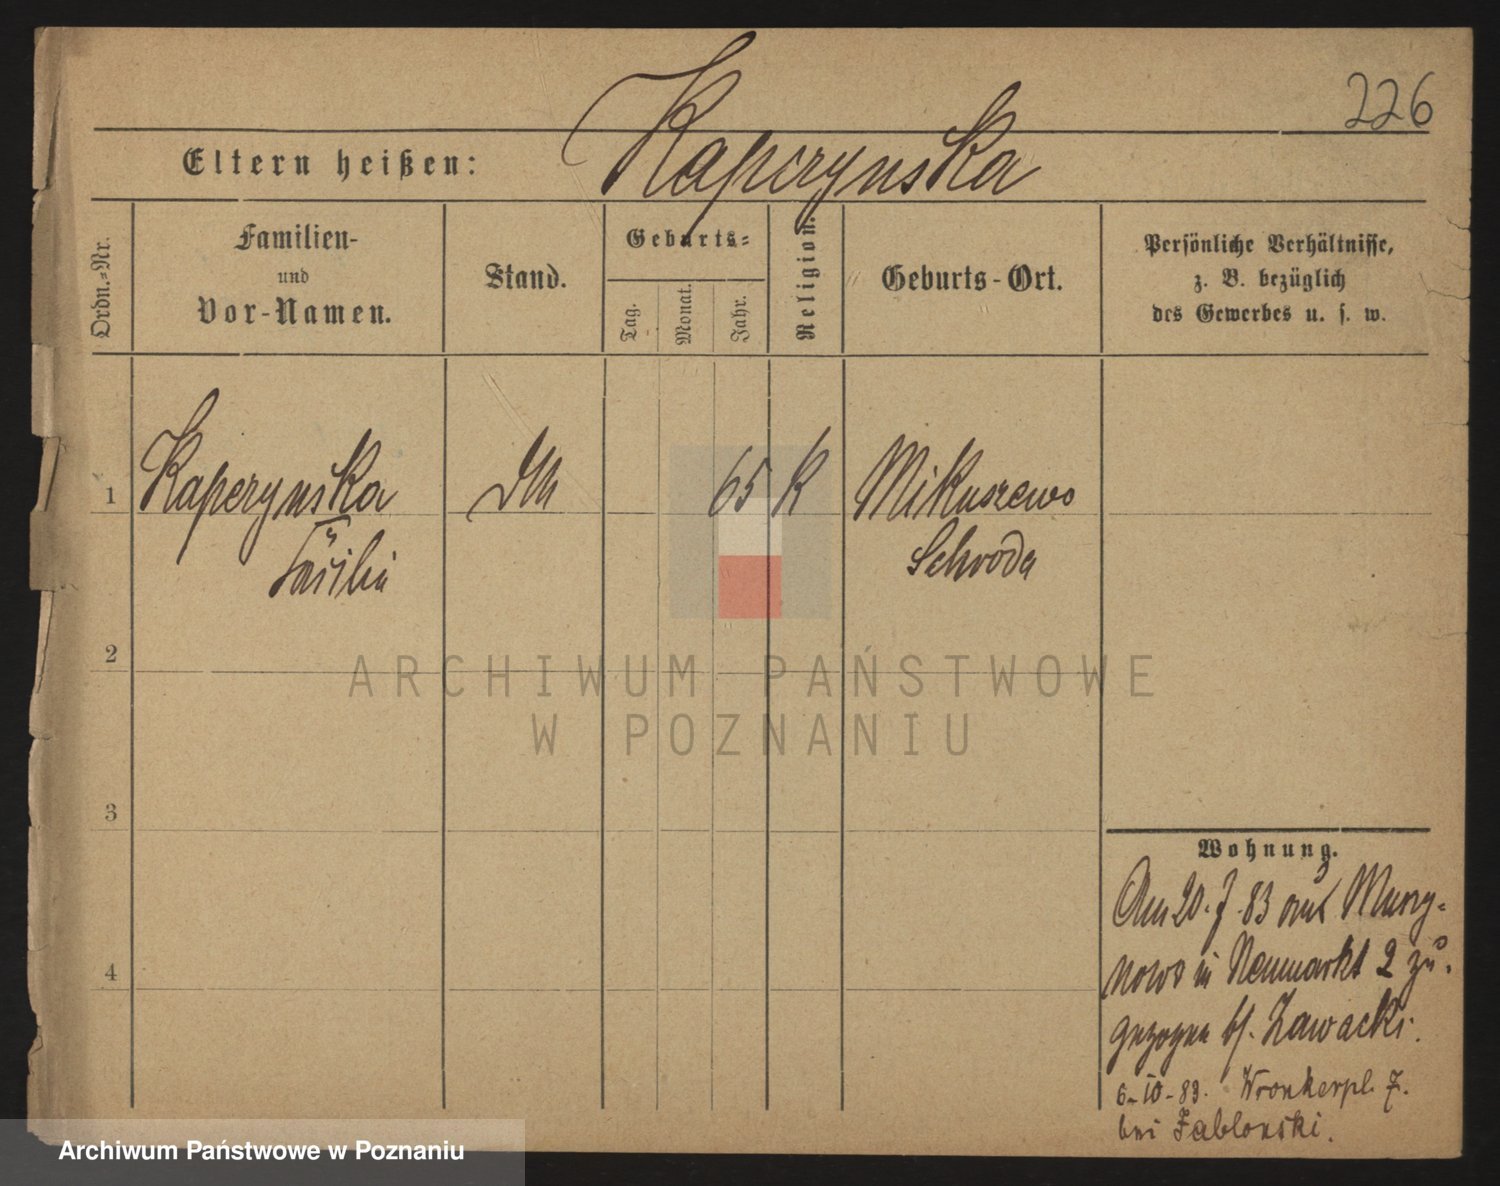 226
Eltern heißen: Kaperynska
Ordn.-Nr.
Familien-
und
Vor-Namen.
Stand.
Geburts-
Tag.
Monat.
Jahr.
Religion.
Geburts-Ort.
Persönliche Verhältnisse,
z. B. bezüglich
des Gewerbes u. s. w.
1 Kaperynska 65 K Mikuszewo
Cäcilia Schroda
2
ARCHIWUM PAŃSTWOWE
W POZNANIU
3
Wohnung.
Am 20. 7. 83 aus Murzy-
nowo in Neumarkt 2 zu-
gezogen bf. Zawacki.
4
6-10-83. Wronkerpl. 7.
bei Jablonski.
Archiwum Państwowe w Poznaniu